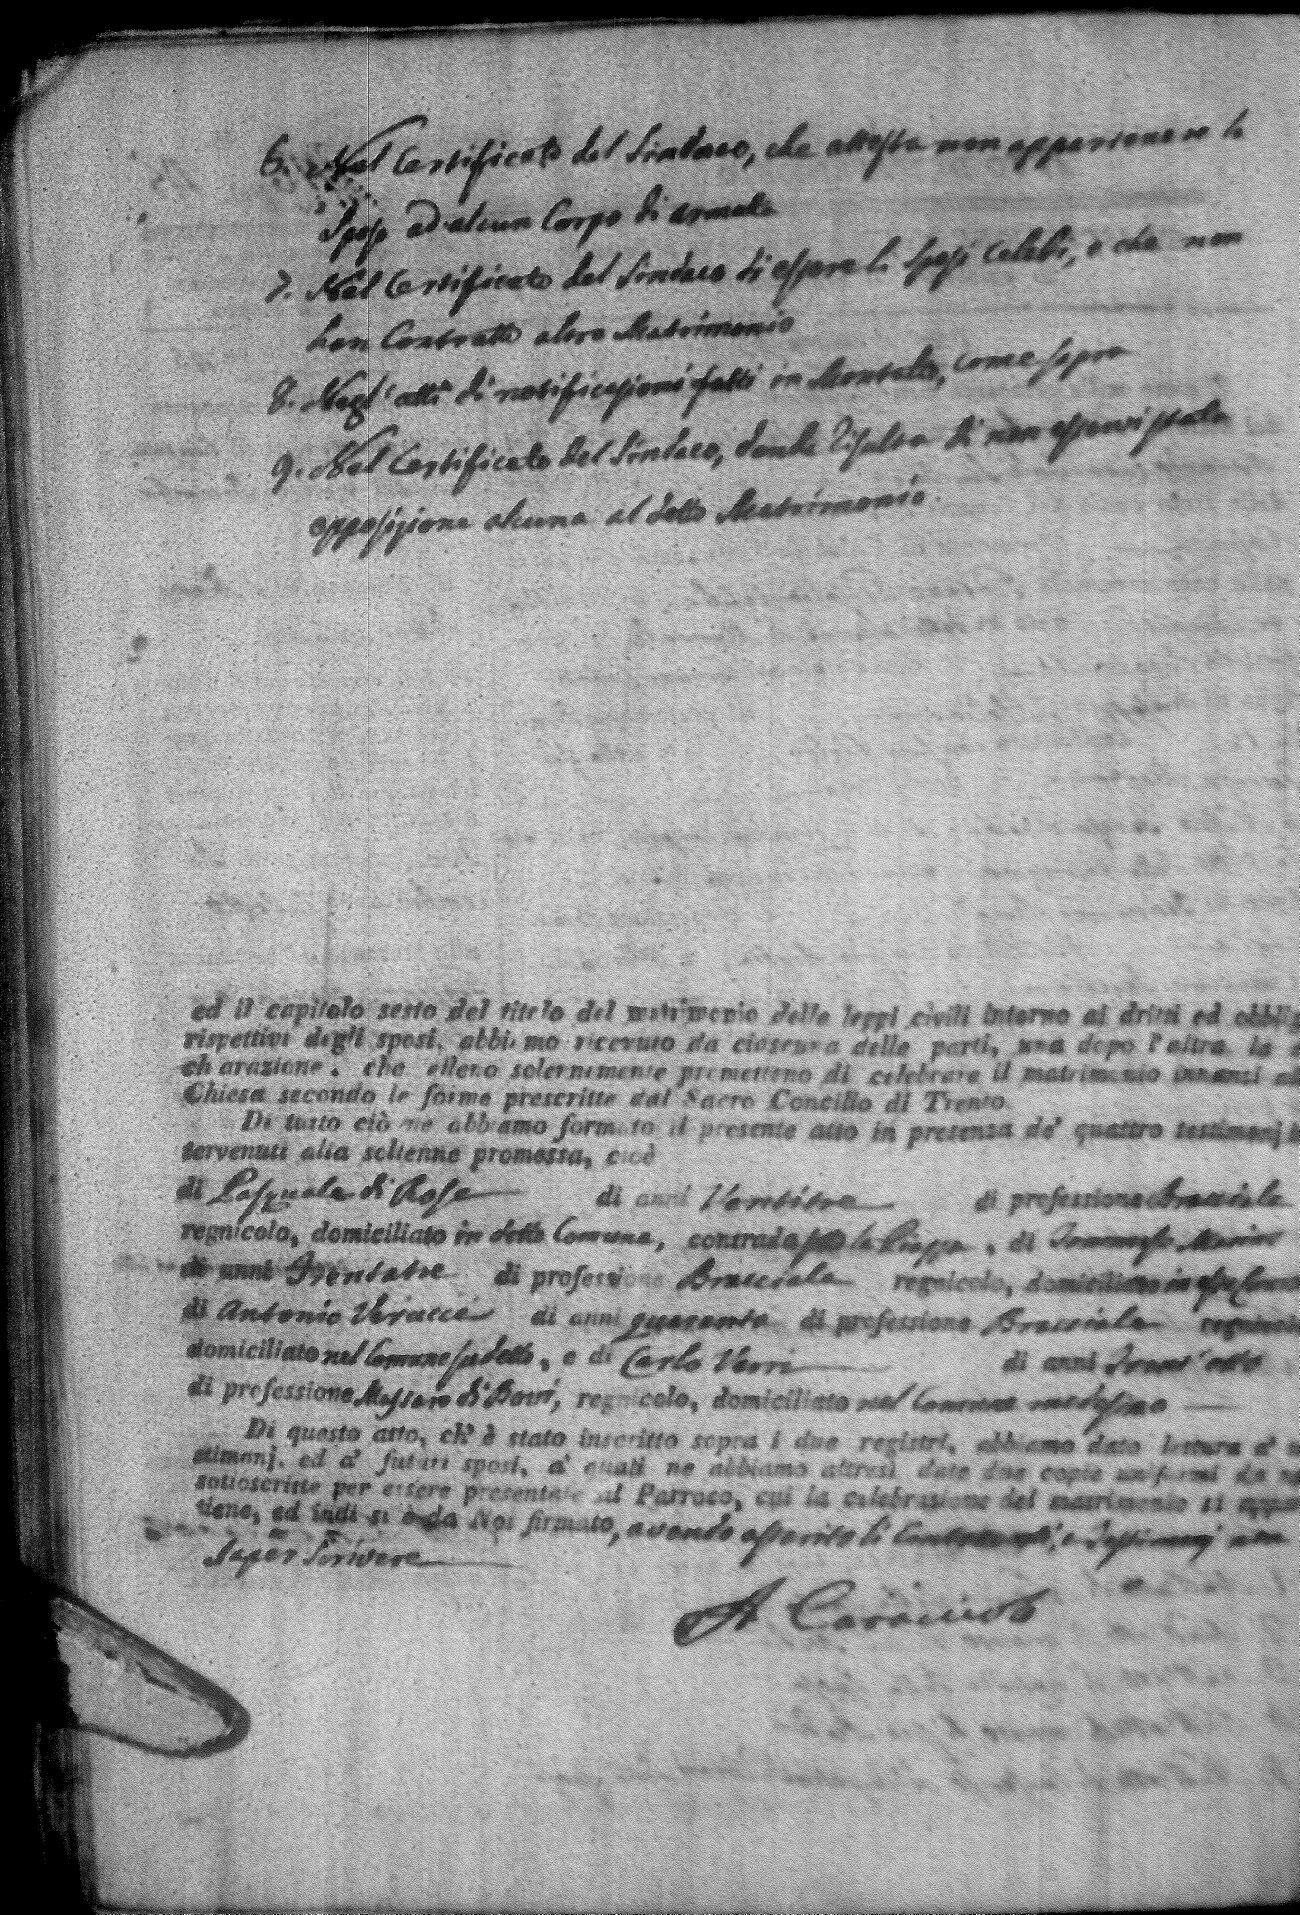 6. Nel Certificato del Sindaco, che attesta non appartenere li
Sposi ad alcun Corpo di armata
7. Nel Certificato del Sindaco di essere li Sposi Celibi, e che non
han Contratto altro Matrimonio
8. Negl'atti di notificazioni fatti in Montalto, come sopra
9. Nel Certificato del Sindaco, donde risulta di non esservi stata
opposizione alcuna al detto Matrimonio.
ed il capitolo sesto del titolo del matrimonio delle leggi civili intorno ai dritti ed obblig
rispettivi degli sposi, abbiamo ricevuto da ciascuna delle parti, una dopo l'altra la
charazione, che elleno solennemente promettono di celebrare il matrimonio innanzi al
Chiesa secondo le forme prescritte dal Sacro Concilio di Trento.
Di tutto ciò ne abbiamo formato il presente atto in presenza de' quattro testimonj in
tervenuti alla solenne promessa, cioè
di Pasquale di Rose di anni Ventitre di professione Bracciale
regnicolo, domiciliato in detto Comune, contrada la Piazza, di Tommaso
di anni Trentatre di professione Bracciale regnicolo, domiciliato in
di Antonio Veracca di anni quaranta di professione Bracciale regnicolo
domiciliato nel Comune sudetto, e di Carlo di anni Trent'otto
di professione Massaro di Bovi, regnicolo, domiciliato nel Comune medesimo
Di questo atto, ch' è stato inscritto sopra i due registri, abbiamo dato lettura a'
stimonj, ed a' futuri sposi, a' quali ne abbiamo altresì date due copie uniformi da
sottoscritte per essere presentate al Parroco, cui la celebrazione del matrimonio si appar
tiene, ed indi si è da Noi firmato, avendo asserito li Contraenti, e Testimonj non
saper scrivere